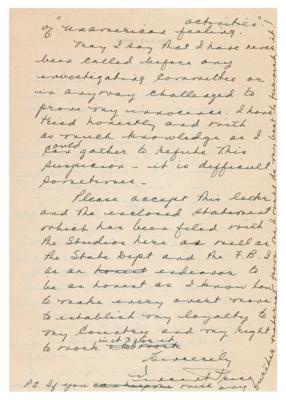 activities" -
of "unamerican feeling.
May I say that I have never
been called before any
investigating committee or
in anyway challenged to
prove my innocence. I have
tried honestly and with
as much knowledge as I
could gather to refute this
suspicion - it is difficult
sometimes -
Please accept this letter
and the enclosed statement
which has been filed with
the Studios here as well as
the State Dept and the F.B.I
as an honest endeavor to
be as honest as I know how
to make every overt move
to establish my loyalty to
my Country and my right
to work in it & for it
Sincerely
Vincent Price
P.S. If you with any